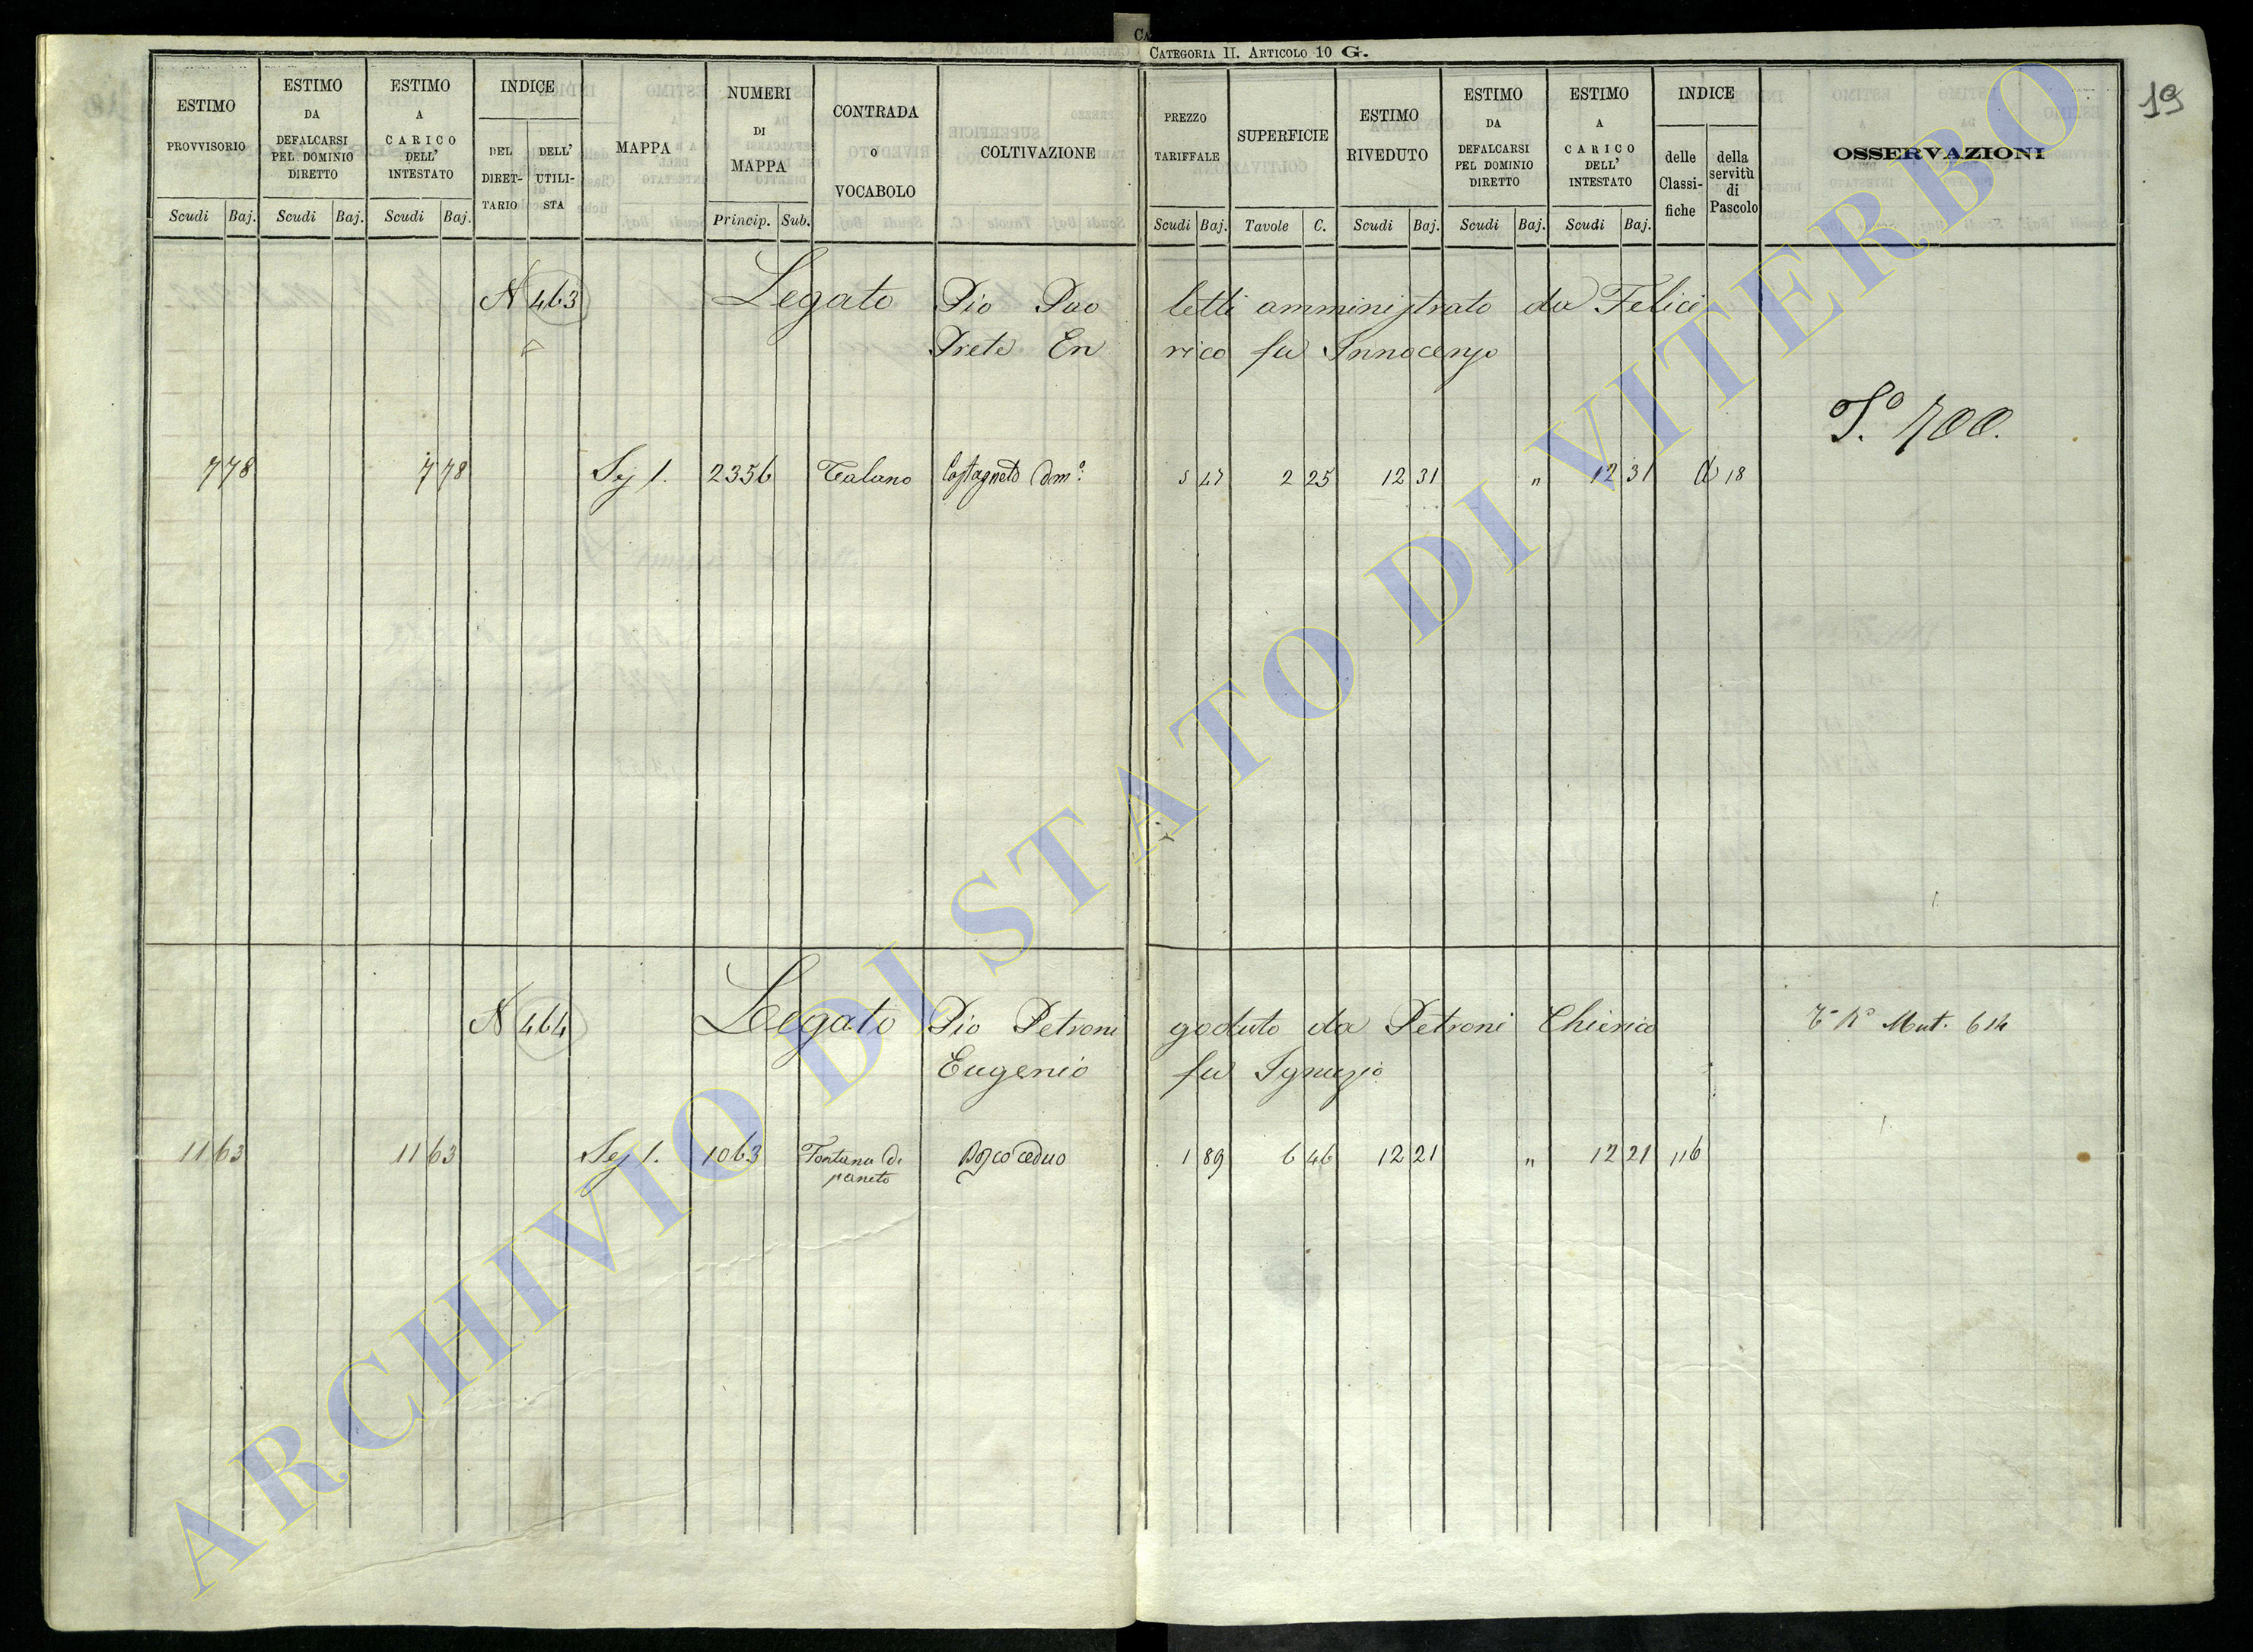 CATEGORIA II. ARTICOLO 10 G.
19
ESTIMO PROVVISORIO Scudi Baj.
ESTIMO DA DEFALCARSI PEL DOMINIO DIRETTO Scudi Baj.
ESTIMO A CARICO DELL' INTESTATO Scudi Baj.
INDICE DEL DIRET-TARIO DELL' UTILI-STA
MAPPA
NUMERI DI MAPPA Princip. Sub.
CONTRADA O VOCABOLO
COLTIVAZIONE
PREZZO TARIFFALE Scudi Baj.
SUPERFICIE Tavole C.
ESTIMO RIVEDUTO Scudi Baj.
ESTIMO DA DEFALCARSI PEL DOMINIO DIRETTO Scudi Baj.
ESTIMO A CARICO DELL' INTESTATO Scudi Baj.
INDICE delle Classi-fiche della servitù di Pascolo
OSSERVAZIONI
N 463 Legato Pio Pao letti amministrato da Felici
Prete En rico fu Innocenzo
7 78 7 78 Sez 1. 2356 Talano Castagneto dom° 5 47 2 25 12 31 " 12 31 18
N 464 Legato Pio Petroni goduto da Petroni Chierico Mut. 614
Eugenio fu Ignazio
11 63 11 63 Sez 1. 1063 Fontana di Bosco ceduo 1 89 6 46 12 21 " 12 21 116
ARCHIVIO DI STATO DI VITERBO